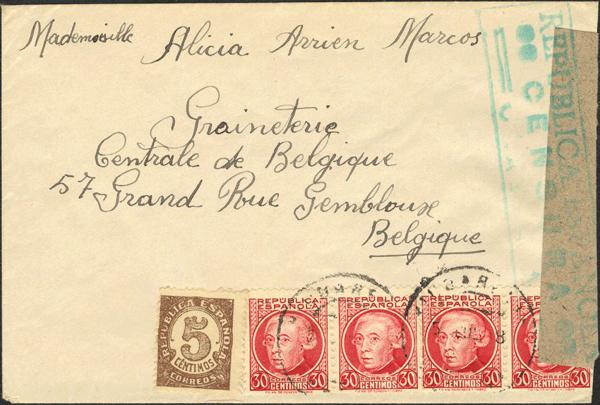 Mademoiselle Alicia Arrien Marcos
Graineterie
Centrale de Belgique
57 Grand Rue Gembloux
Belgique
REPUBLICA
CENSURA
REPUBLICA ESPAÑOLA
5
CENTIMOS
CORREOS
REPÚBLICA
ESPAÑOLA
CORREOS
30 CENTIMOS 30
REPÚBLICA
ESPAÑOLA
CORREOS
30 CENTIMOS 30
REPÚBLICA
ESPAÑOLA
CORREOS
30 CENTIMOS 30
REPÚBLICA
ESPAÑOLA
30